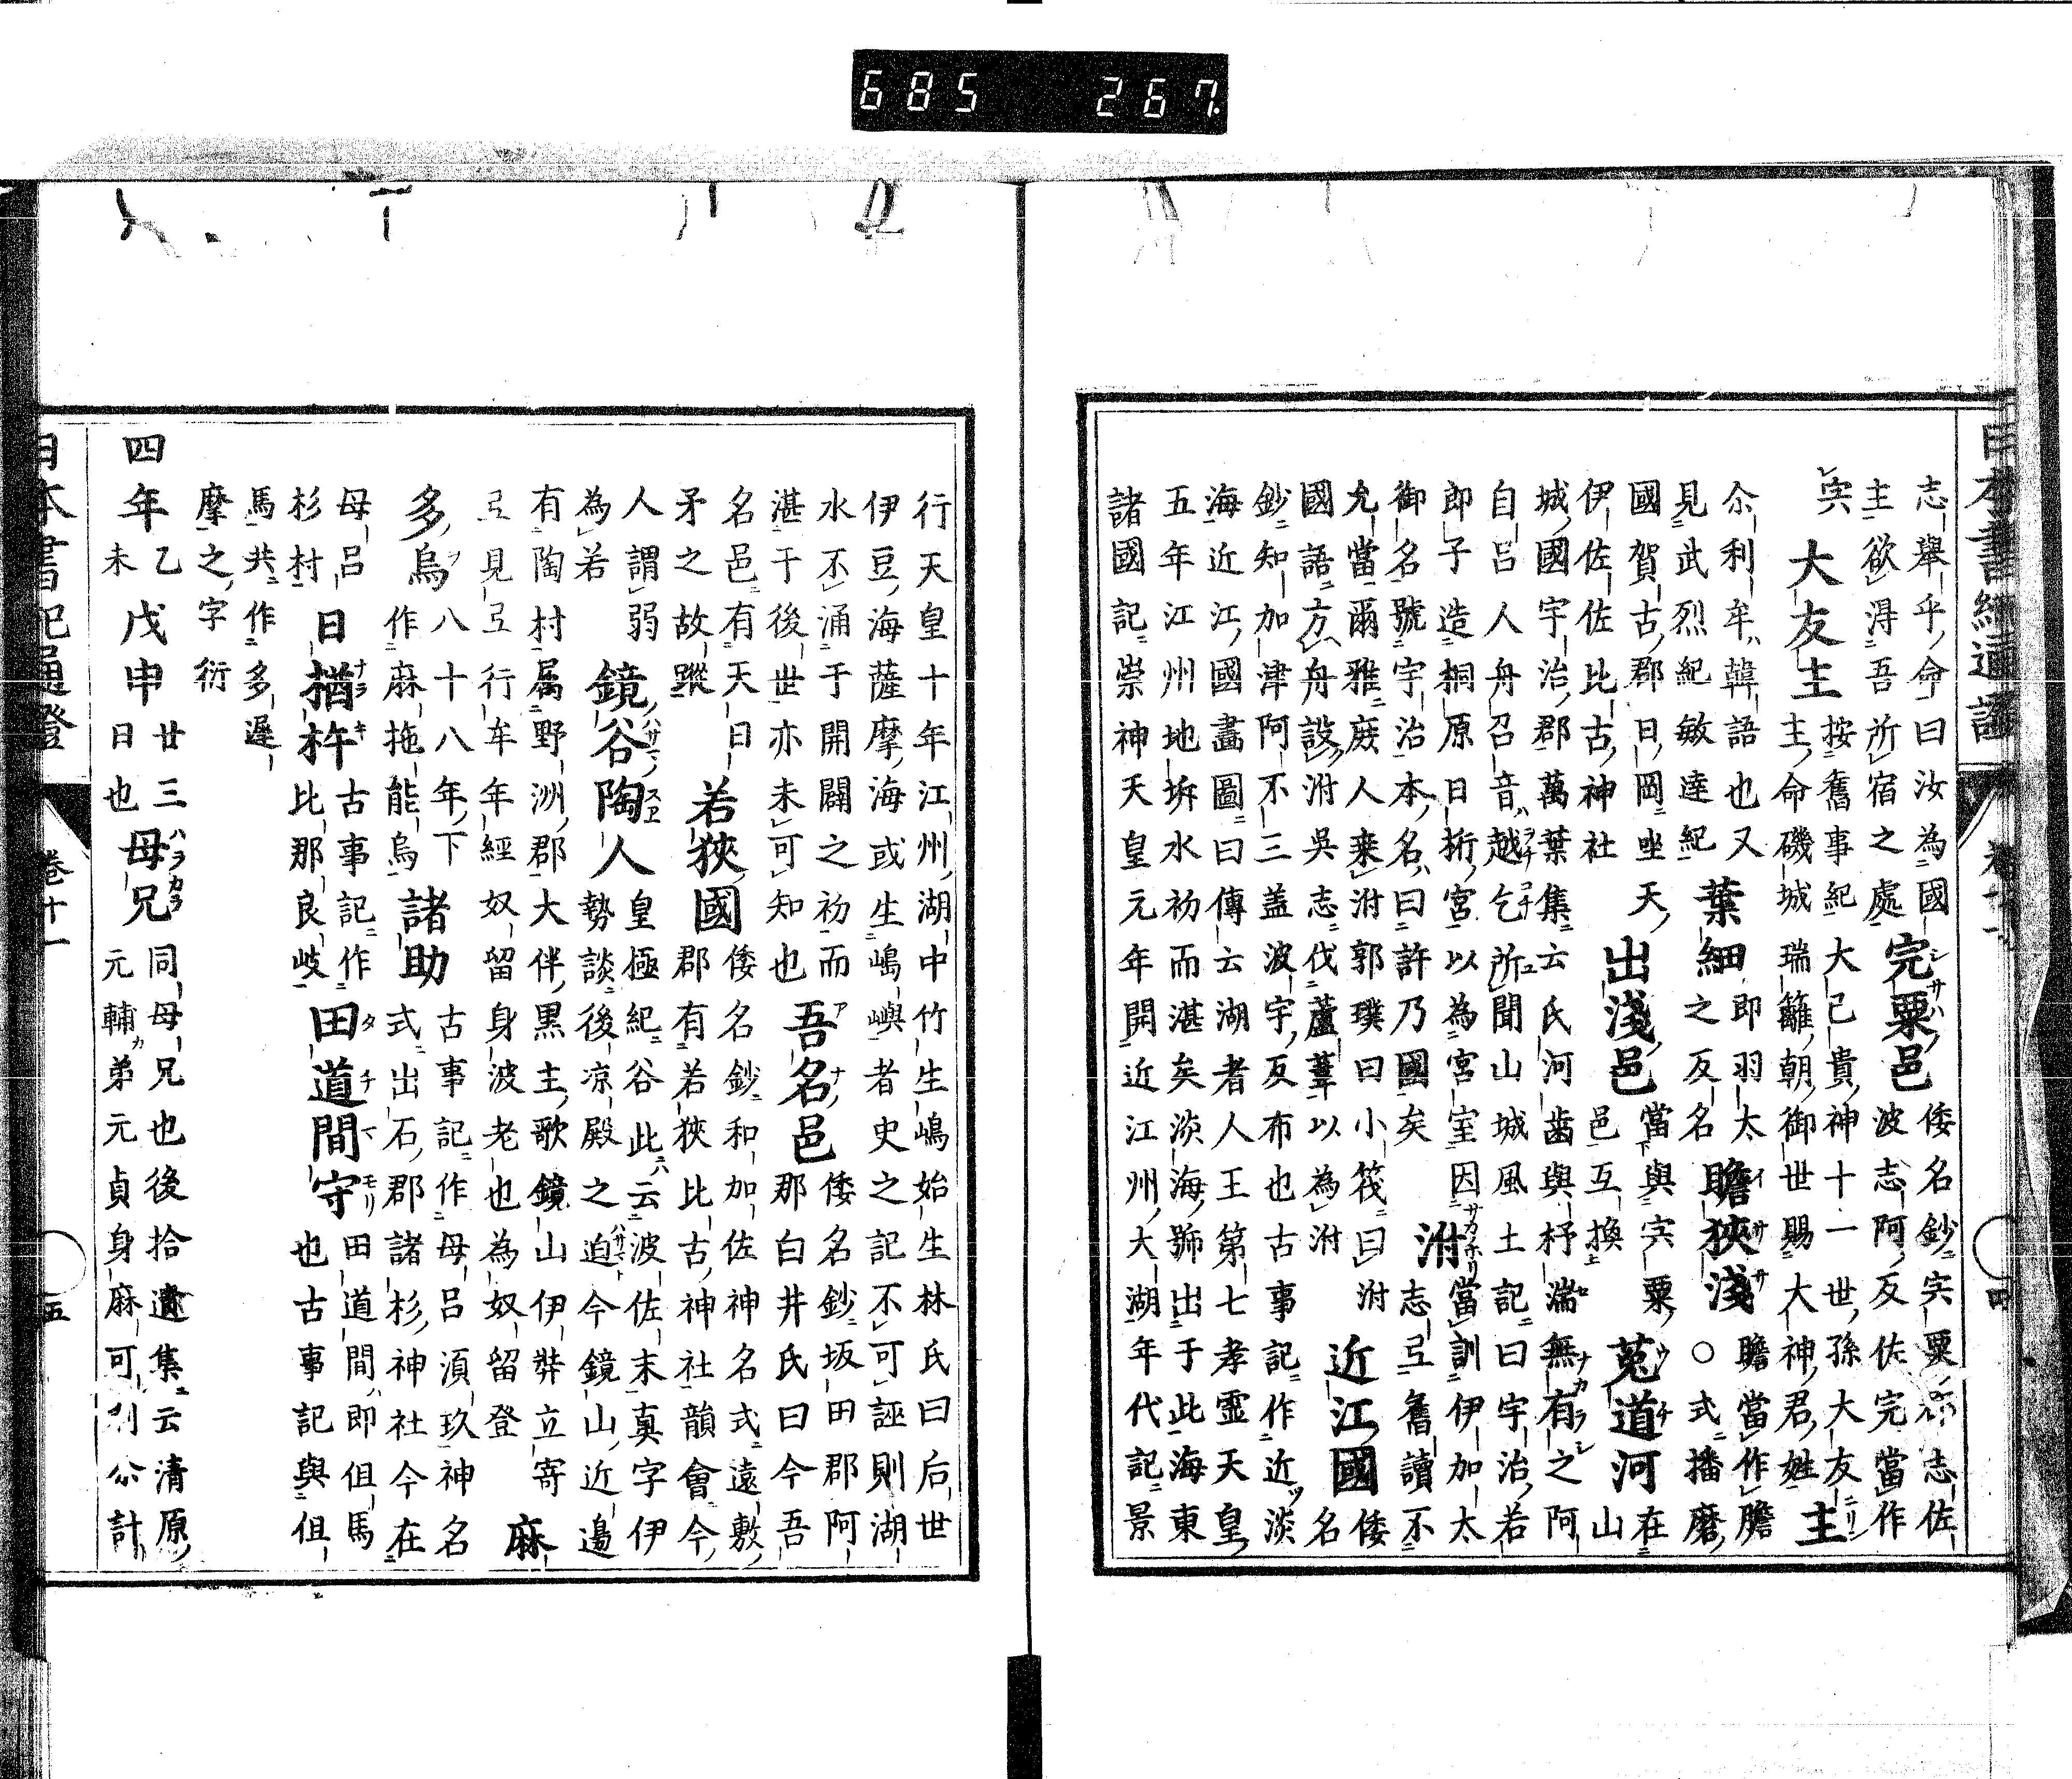 日本書紀通證 卷十一 四
志舉乎命曰汝為國主欲淂吾所宿之處 完粟邑 倭名鈔宍粟志佐波志阿反佐完當作
宍 大友主 按舊事紀大己貴神十一世孫大友主命磯城瑞籬朝御世賜大神君姓 主
尒利牟韓語也又見武烈紀敏達紀 葉細 即羽太之反名 瞻狹淺 瞻當作膽○式播磨
國賀古郡日岡坐天伊佐佐比古神社 出淺邑 當與宍粟邑互換 菟道河 在山
城國宇治郡萬葉集云氏河齒與杼湍無有之阿自呂人舟召音越乞所聞山城風土記曰宇治若
郎子造桐原日桁宮以為宮室因御名號宇治本名曰許乃國矣 泭 當訓伊加太志弖舊讀不
允當爾雅庶人乗泭郭璞曰小筏曰泭國語方舟設泭吳志伐蘆葦以為泭 近江國 倭名
鈔知加津阿不三盖波宇反布也古事記作近淡海近江國畵圖曰傳云湖者人王第七孝霊天皇
五年江州地坼水初而湛矣淡海號出于此海東諸國記崇神天皇元年開近江州大湖年代記景
行天皇十年江州湖中竹生嶋始生林氏曰后世伊豆海薩摩海或生嶋嶼者史之記不可誣則湖
水不涌于開闢之初而湛于後世亦未可知也 吾名邑 倭名鈔坂田郡阿那白井氏曰今吾
名邑有天日矛之故蹤 若狹國 倭名鈔和加佐神名式遠敷郡有若狹比古神社韻會今
人謂弱為若 鏡谷陶人 皇極紀谷此云波佐末真字伊勢談後凉殿之迫今鏡山近邊
有陶村属野洲郡大伴黒主歌鏡山伊弉立寄弖見弖行牟年經奴留身波老也為奴留登 麻
多烏 八十八年下作麻拖能烏 諸助 古事記作母呂湏玖神名式出石郡諸杉神社今在
母呂杉村 日楢杵 古事記作比那良岐 田道間守 田道間即但馬也古事記與但
馬共作多遅摩之字衍
四年 乙未 戊申 廿三日也 母兄 同母兄也後拾遺集云清原元輔弟元貞身麻可利尒計
日本書紀通證 卷十一 五
685 267